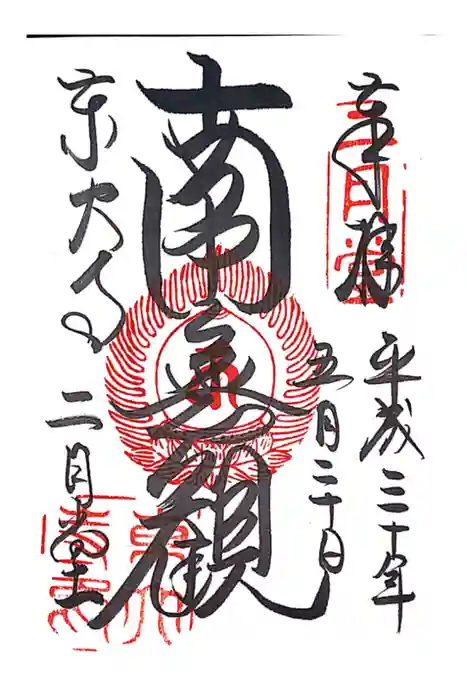 奉拝
平成三十年
五月二十日
南無観
東大寺
二月堂